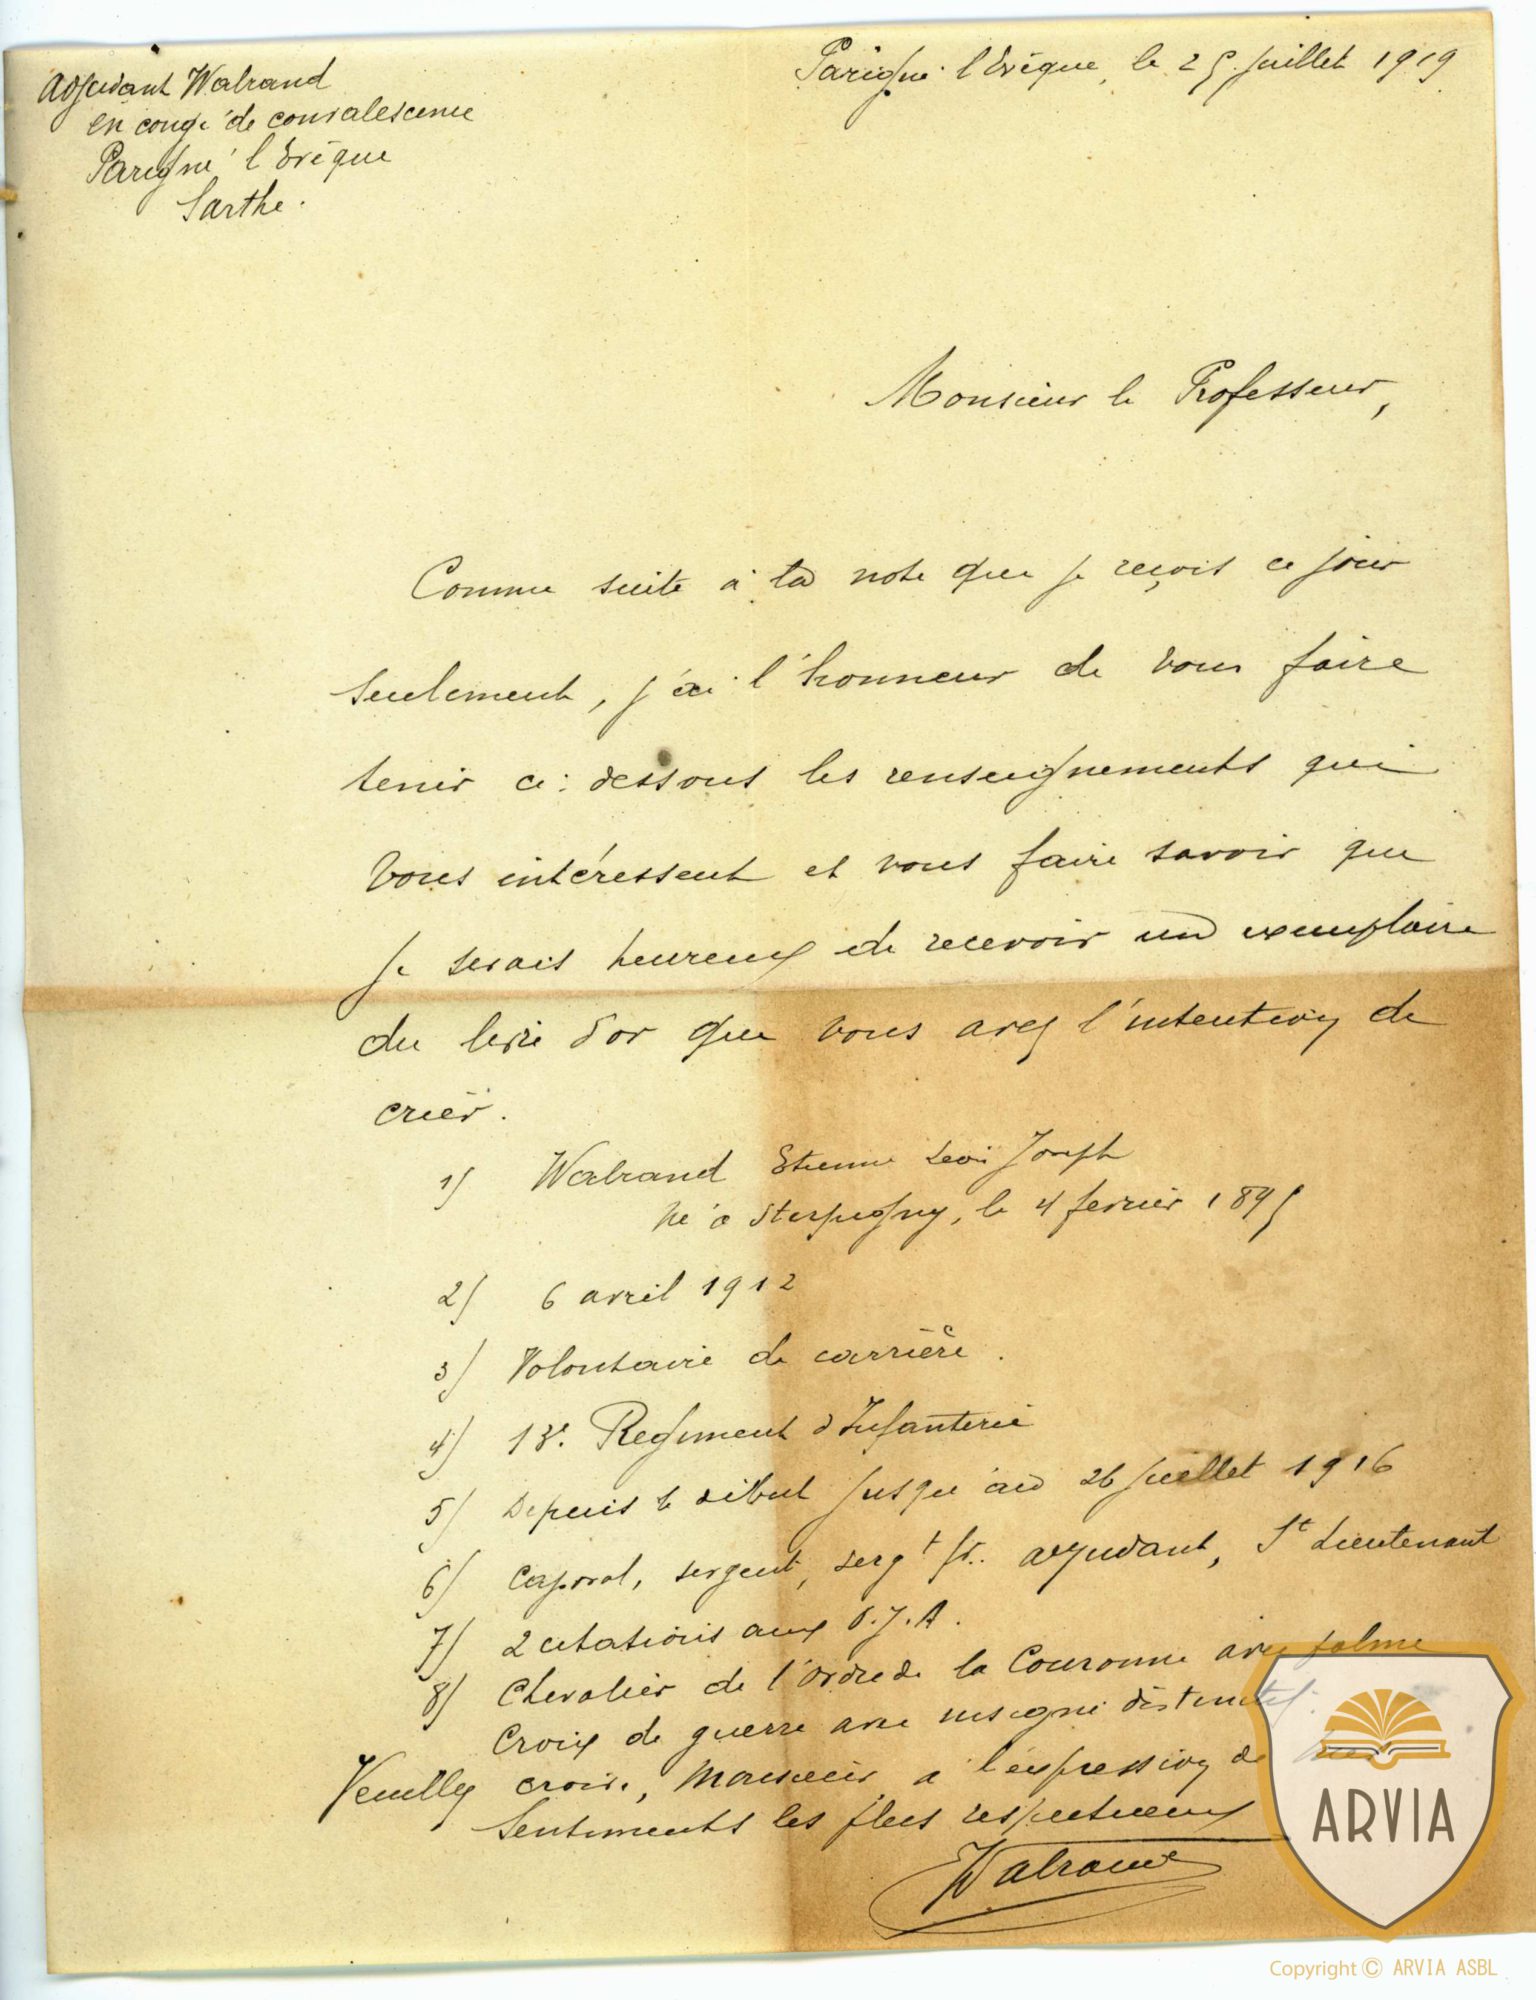 Adjudant Walrand
en congé de convalescence
Parigné l'Evêque
Sarthe.
Parigné l'Evêque, le 25 juillet 1919
Monsieur le Professeur,
Comme suite à la note que je reçois ce jour
seulement, j'ai l'honneur de vous faire
tenir ci-dessous les renseignements qui
vous intéressent et vous faire savoir que
je serais heureux de recevoir un exemplaire
du livre d'or que vous avez l'intention de
créer.
1) Walrand Etienne Léon Joseph
né à Sterpigny, le 4 février 1895
2) 6 avril 1912
3) Volontaire de carrière.
4) 13e. Régiment d'Infanterie
5) Depuis le début jusqu'au 26 juillet 1916
6) Caporal, sergent, sergt fr.. adjudant, St Lieutenant
7) 2 citations aux O.J.A.
8) Chevalier de l'ordre de la Couronne avec palme
Croix de guerre avec insigne distinctif.
Veuillez croire, Monsieur, à l'expression de mes
sentiments les plus respectueux
Walrand
ARVIA
Copyright © ARVIA ASBL